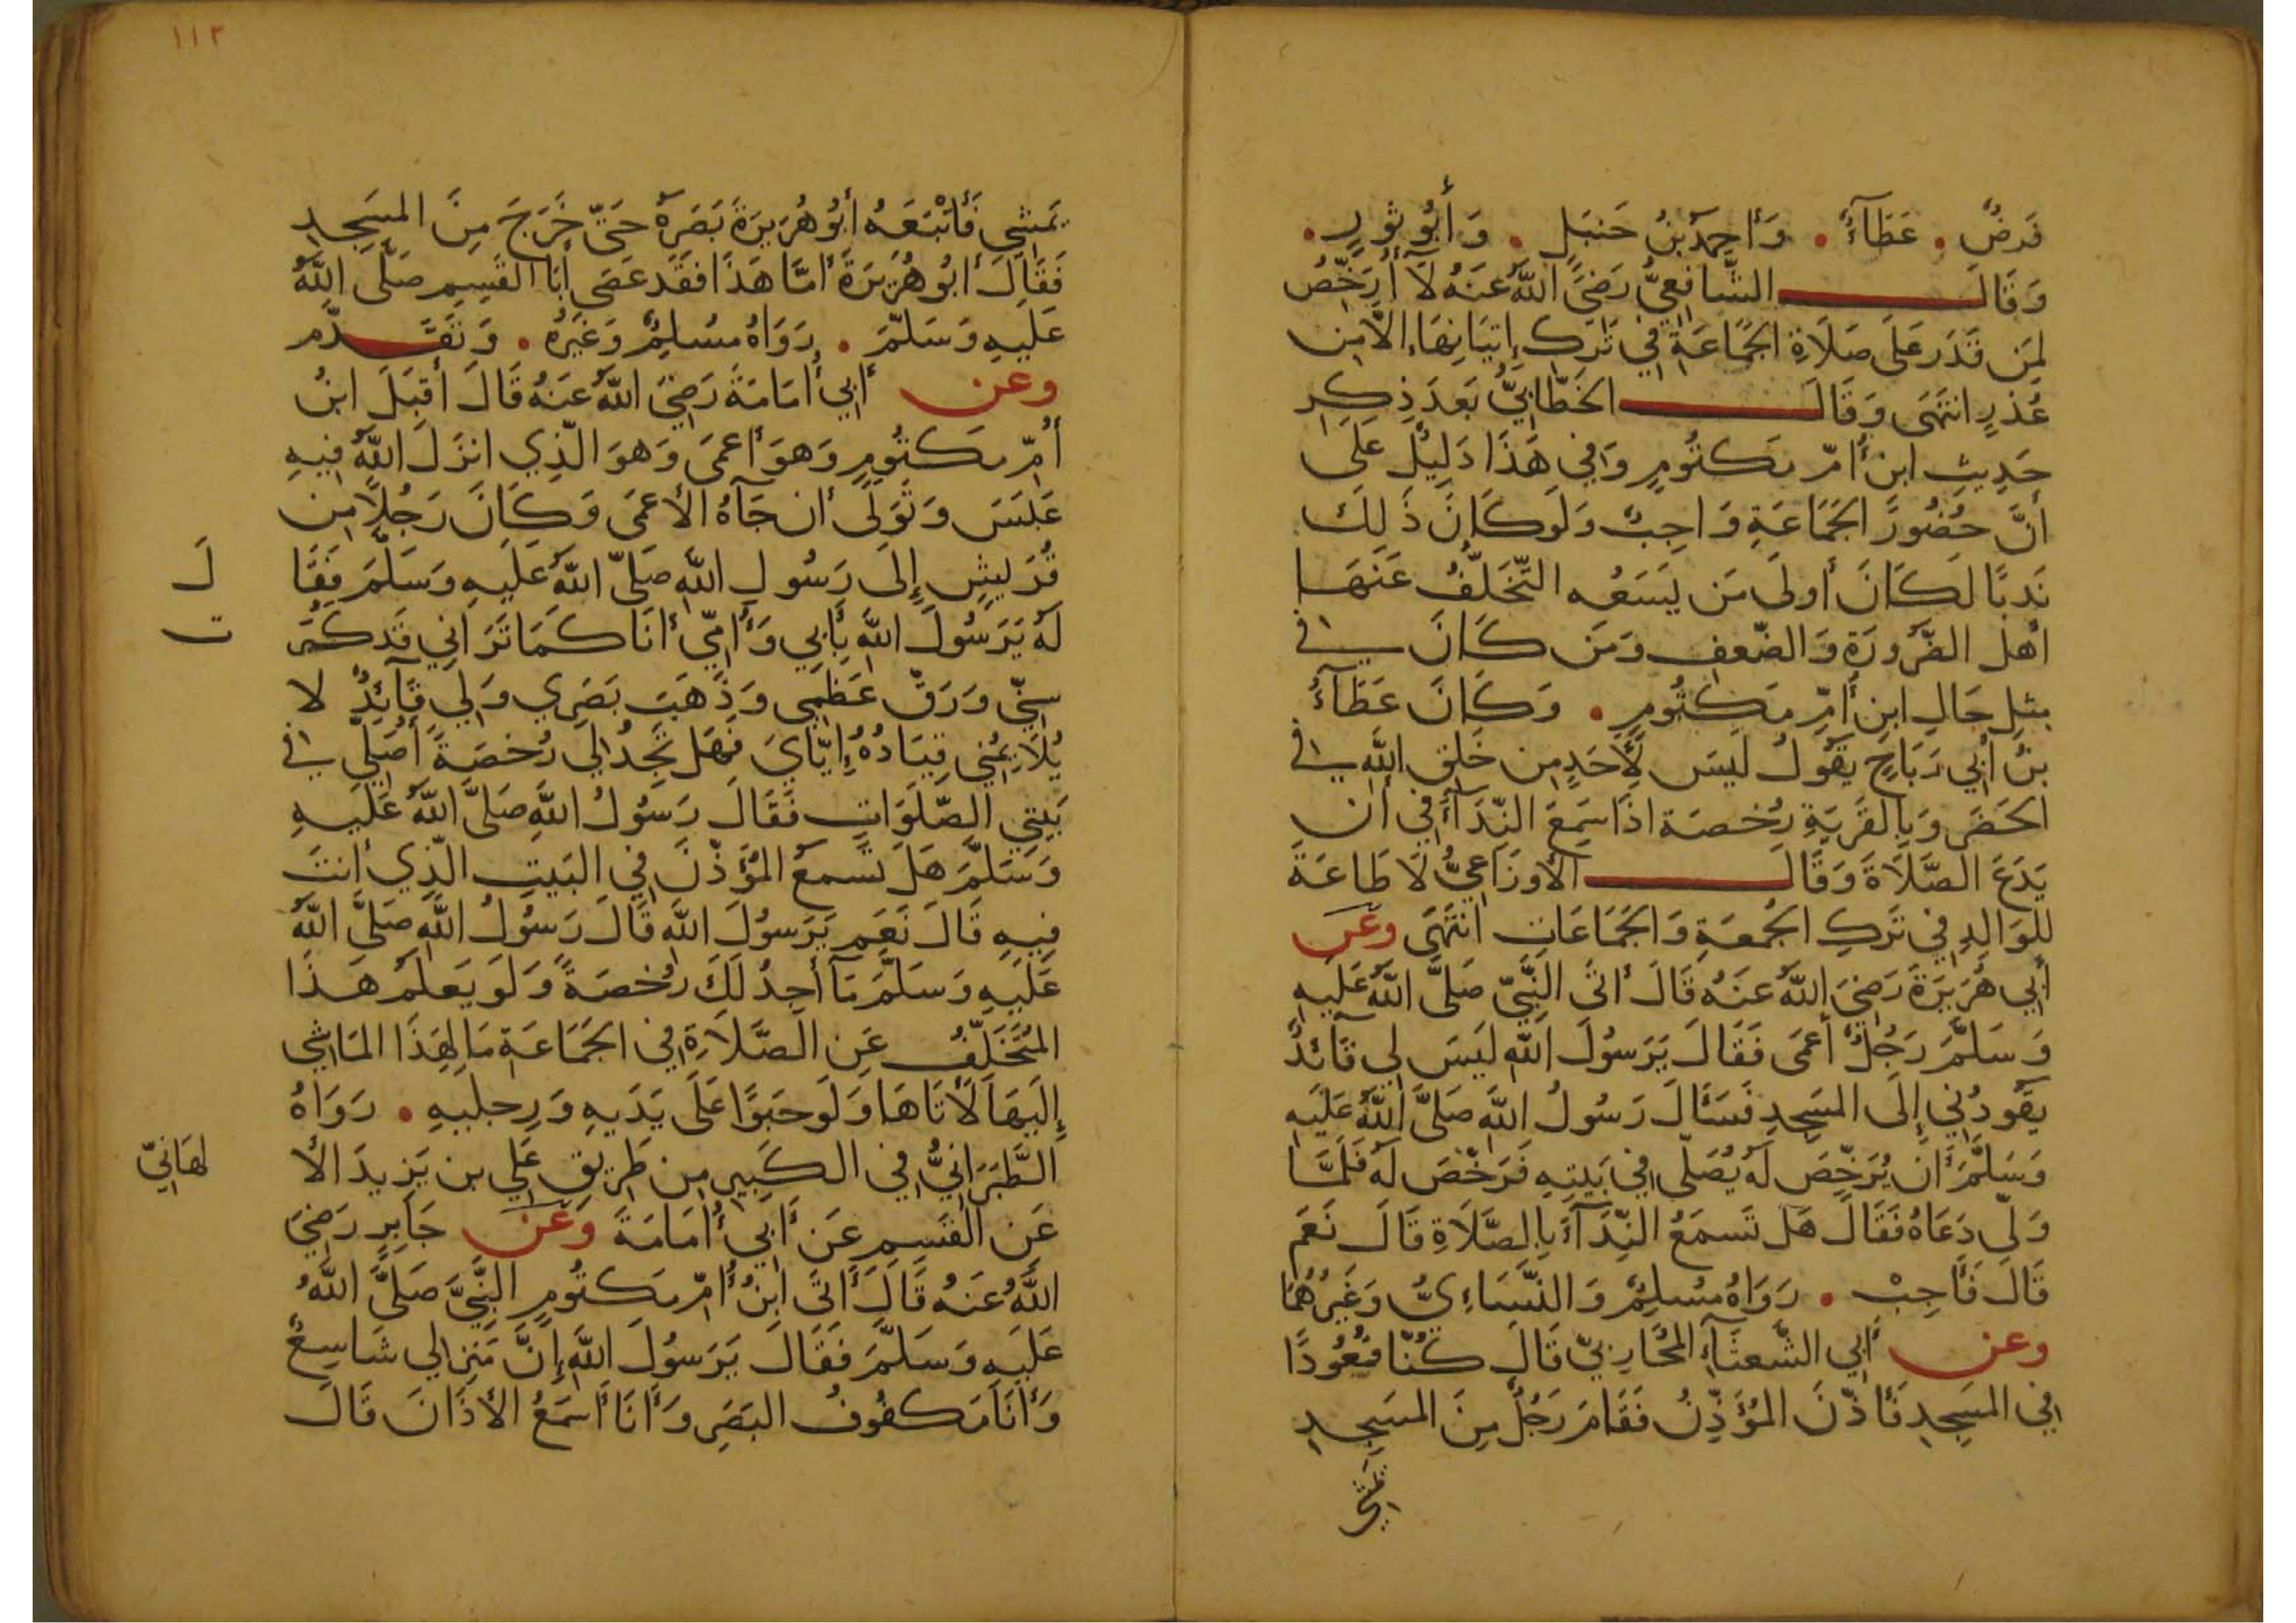 فَرضٌ . عَطَآءٌ . وَأحمدُ بنُ حَنبَلٍ . وَأبُو ثَورٍ .
وَقَالَ الشَّافِعِيُّ رَضِيَ اللَّهُ عَنهُ لَا أُرَخِّصُ
لِمَن قَدَرَ عَلَى صَلَاةِ الجَمَاعَةِ فِي تَركِ إِتيَانِهَا إلَّا مِن
عُذرٍ انتَهَى وَقَالَ الخَطَّابِيُّ بَعدَ ذِكرِ
حَدِيثِ ابنِ أُمِّ مَكتُومٍ وَفِي هَذَا دَلِيلٌ عَلَى
أنَّ حُضُورَ الجَمَاعَةِ وَاجِبٌ وَلَو كَانَ ذَلِكَ
نَدبًا لَكَانَ أولَى مَن يَسَعُه التَّخَلُّفُ عَنهَا
أهل الضَّرُورَةِ وَالضّعفِ وَمَن كَانَ فِي
مِثلِ حَالِ ابنِ أُمِّ مَكتُومٍ . وَكَانَ عَطَآءُ
بنُ أبِي رَبَاحٍ يَقُولُ لَيسَ لِأَحَدٍ مِن خَلقِ اللَّهِ فِي
الحَضَرِ وَبِالقَريَةِ رُخصَة اذَا سَمِعَ النِّدَآءَ فِي أن
يَدَعَ الصَّلَاةَ وَقَالَ الأوزَاعِيُّ لَا طَاعَةَ
لِلوَالِدِ فِي تَركِ الجُمعَةِ وَالجَمَاعَاتِ انتَهَى وعَن
أبِي هُرَيرَةَ رَضِيَ اللَّهُ عَنهُ قَالَ أتَى النَّبِيَّ صَلَّى اللَّهُ عَلَيهِ
وَسَلَّمَ رَجُلٌ أعمَى فَقَالَ يَرَسُولَ اللَّهِ لَيسَ لِي قَآئدٌ
يَقُودُنِي إِلَى المَسجِدِ فَسَئَالَ رَسُولُ اللَّهِ صَلَّى اللَّهُ عَلَيهِ
وَسَلَّمَ أن يُرَخِّصَ لَهُ يُصَلِّي فِي بَيتِهِ فَرَخَّصَ لَهُ فَلَمَّا
وَلّى دَعَاهُ فَقَالَ هَل تَسمَعُ النِّدَآءَ بِالصَّلَاةِ قَالَ نَعَم
قَالَ فَأجِبْ . رَوَاهُ مُسلِمٌ وَالنَّسَاءِيُّ وَغَيرُهُمَا
وعن أبِي الشَّعثَآءِ المُحَارِبيّ قَالَ كُنَّا قُعُودًا
فِي المَسجِدِ فَأذّنَ المُؤَذِّنُ فَقَامَ رَجُلٌ مِنَ المَسجِدِ
يَمشِي
١١٢
يَمشِي فَأتْبَعَهُ أبُو هُرَيرَةَ بَصَرَهُ حَتَّى خَرَجَ مِنَ المَسجِدِ
فَقَالَ أبُو هُرَيرَةَ أمَّا هَذَا فقَد عَصَى أبَا القَسِمِ صَلَّى اللَّهُ
عَلَيهِ وَسَلَّمَ . رَوَاهُ مُسلِمٌ وَغَيرُهُ . وَتَقَدَّم
وعن أبِي أُمَامَةَ رَضِيَ اللَّهُ عَنهُ قَالَ أقبَلَ ابنُ
أُمِّ مَكتُومٍ وَهوَ أعمَى وَهوَ الَّذِي انزَلَ اللَّهُ فِيهِ
عَبَسَ وَتَوَلَّى أن جَآءهُ الأعمَى وَكَانَ رَجُلًا مِن
قُرَيشٍ إِلَى رَسُولِ اللَّهِ صَلَّى اللَّهُ عَلَيهِ وَسَلَّمَ فَقَا لَ
لَهُ يَرَسُولَ اللَّهِ بِأبِي وَأُمِّي أنَا كَمَا تَرَانِي قَد كَبُرَ ت
سِنِّي وَرَقَّ عَظمِي وَذَهَبَ بَصَرِي وَلِي قَآئِدٌ لا
يُلَايِمُنِي قِيَادُهُ إِيَّايَ فَهَل تَجِدُ لِي رُخصَةً أُصَلِّي فِي
بَيتِي الصَّلَوَاتِ فَقَالَ رَسُولُ اللَّهِ صَلَّى اللَّهُ عَلَيهِ
وَسَلَّمَ هَل تَسمعُ المُؤَذِّنَ فِي البَيتِ الَّذِي أنتَ
فِيهِ قَالَ نَعَم يَرَسُولَ اللَّه قَالَ رَسُولُ اللَّهِ صَلَّى اللَّهُ
عَلَيهِ وَسَلَّمَ مَآ أجِدُ لَكَ رُخصَةً وَلَو يَعلَمُ هَذَا
المُتَخَلِّفُ عَنِ الصَّلَاةِ فِي الجَمَاعَةِ مَا لِهَذَا المَاشِي
إِلَيهَا لَأتَاهَا وَلَو حَبوًا عَلَى يَدَيهِ وَرِجلَيهِ . رَوَاهُ
الطَّبَرَانِيُّ فِي الكَبِيرِ مِن طَرِيقِ عَلِي بن يَزِيدَ الأ لهَانِيّ
عَنِ القَسِمِ عَن أبِي أُمَامَةَ وَعَن جَابِرٍ رَضِيَ
اللَّهُ عَنهُ قَالَ أتَى ابنُ أُمِّ مَكتُومٍ النَّبِيَّ صَلَّى اللَّهُ
عَلَيهِ وَسَلَّمَ فَقَالَ يَرَسُولَ اللَّهِ إِنَّ مَنزِلي شَاسِعٌ
وَأنَا مَكفُوفُ البَصَرِ وَأنَا أسمَعُ الأذَانَ قَالَ